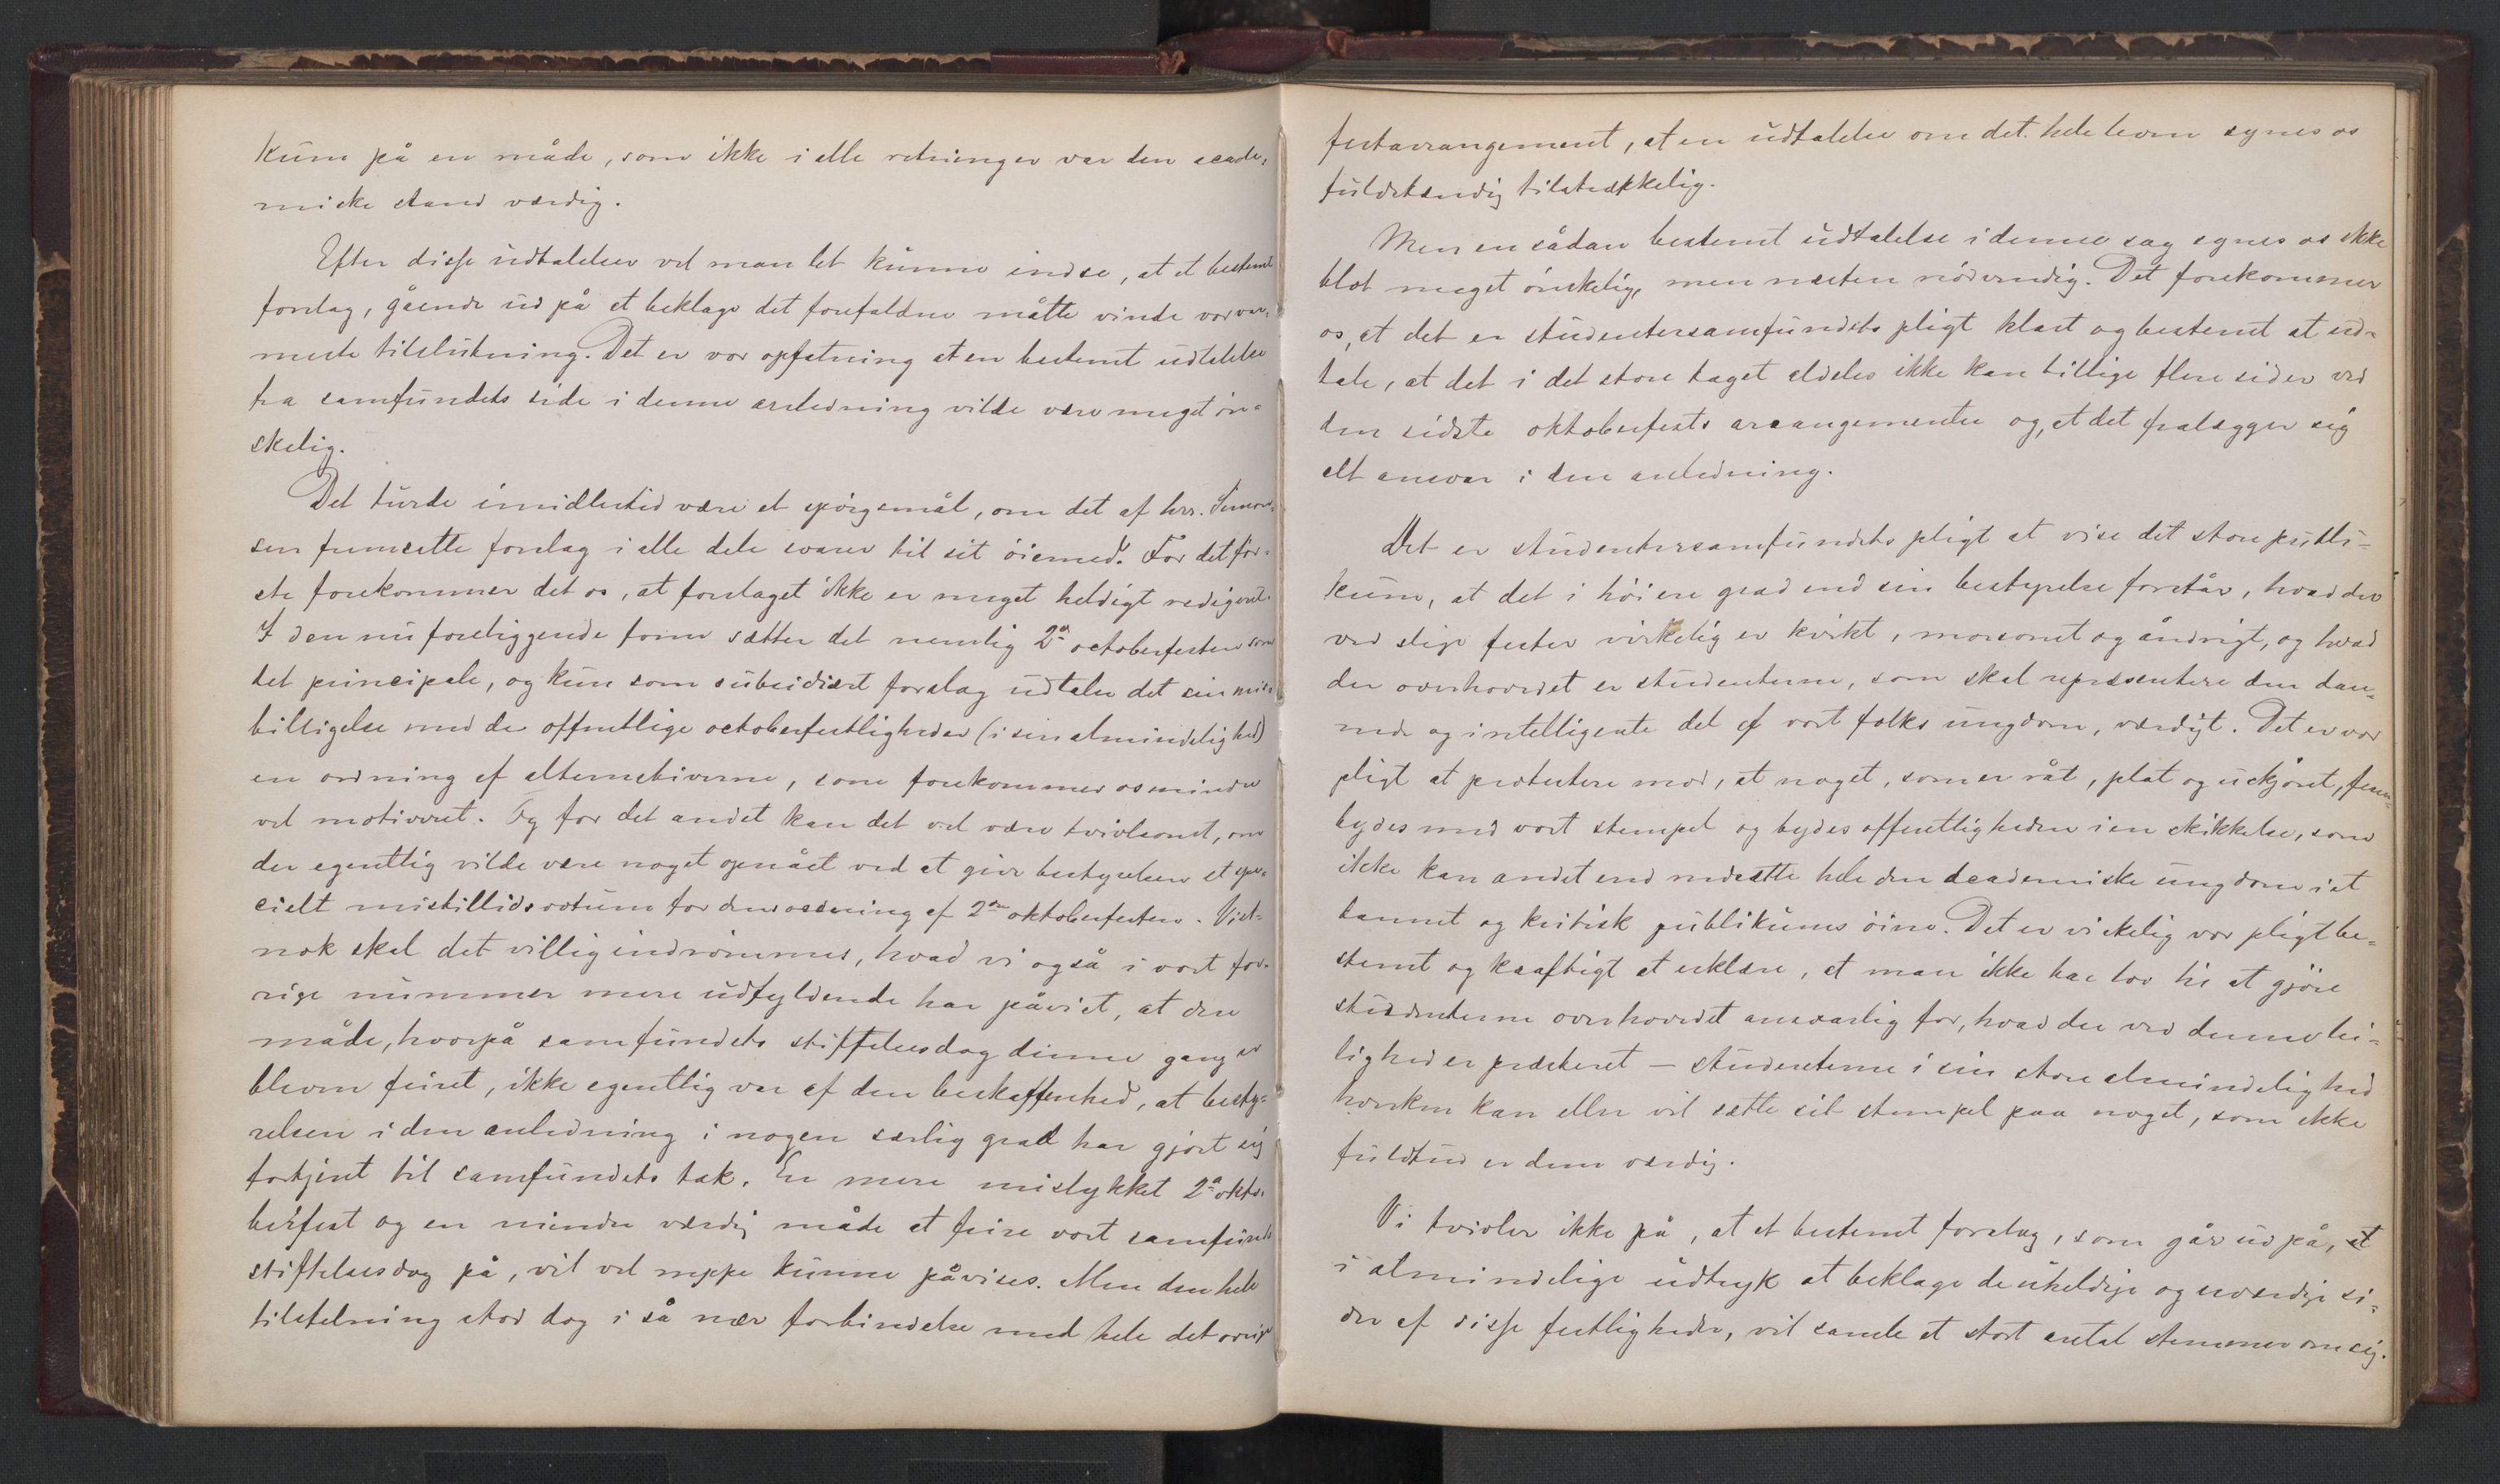 kum på en måde, som ikke i alle retninger var den acade-
miske stand værdig.
Efter disse udtalelser vil man let kunne indse, at et bestemt
forslag, gående ud på at beklage det forefaldne måtte vinde vor var-
meste tilslutning. Det er vor opfatning at en bestemt udtalelse
fra samfundets side i denne anledning vilde være meget øn-
skelig.
Det turde imidlertid være et spörgsmål, om det af hrr. Simon-
sen fremsatte forslag i alle dele svarer til sit öiemed. For detför-
ste forekommer det os, at forslaget ikke er meget heldigt redigeret.
I den nu foreliggende form sætter det nemlig 2den octoberfesten som
det principale, og kun som subsidiært forslag udtaler det sin mis-
billigelse med de offentlige octoberfestligheder (i sin almindelighed)
en ordning af alternativerne, som forekommer os mindre
vel motiveret. Og for det andet kan det vel være tvivlsomt, om
der egentlig vilde være noget opnået ved at give bestyrelsen et spe-
cielt mistillidsvotum for dens ordning af 2den oktoberfesten. Vist-
nok skal det villig indrömmes, hvad vi også i vort for-
rige nummer mere udfyldende har påvist, at den
måde, hvorpå samfundets stiftelsesdag denne gang er
bleven feiret, ikke egentlig var af den beskaffenhed, at besty-
relsen i den anledning i nogen særlig grad har gjort sig
fortjent til samfundets tak. En mere mislykket 2den okto-
berfest og en mindre værdig måde at feire vort samfunds
stiftelsesdag på, vil vel neppe kunne påvises. Men den hele
tilstelning stod dog i så nær forbindelse med hele det øvrige
festarrangement, at en udtalelse om det hele leven synes os
fuldstændig tilstrækkelig.
Men en sådan bestemt udtalelse i denne sag synes os ikke
blot meget önskelig, men næsten nödvendig. Det forekommer
os, at det er studentersamfundets pligt klart og bestemt at ud-
tale, at det i det store taget aldeles ikke kan billige flere sider ved
den sidste oktoberfests arrangementer og, at det fralægger sig
alt ansvar i den anledning.
Det er studentersamfundets pligt at vise det store publi-
kum, at det i höiere grad end sin bestyrelse forstår, hvad der
ved slige fester virkelig er kvikt, morsomt og åndrigt, og hvad
der overhovedet er studenterne, som skal repræsentere den dan-
nede og intelligente del af vort folks ungdom, værdigt. Det er vor
pligt at protestere mod, at noget, som er råt, plat og uskjønt, frem-
bydes med vort stempel og bydes offentligheden i en skikkelse, som
ikke kan andet end nedsætte hele den academiske ungdom i et
dannet og kritisk publikums öine. Det er virkelig vor pligt be-
stemt og kraftigt at erklære, at man ikke har lov til at gjöre
studenterne overhovedet ansvarlig for, hvad der ved denne lei-
lighed er præsteret – studenterne i sin store almindelighed
hverken kan eller vil sætte sit stempel paa noget, som ikke
fuldtud er dem værdig.
Vi tvivler ikke på, at et bestemt forslag, som går ud på, at
i almindelige udtryk at beklage de uheldige og uværdige si-
der af disse festligheder, vil samle et stort antal stemmer om sig.